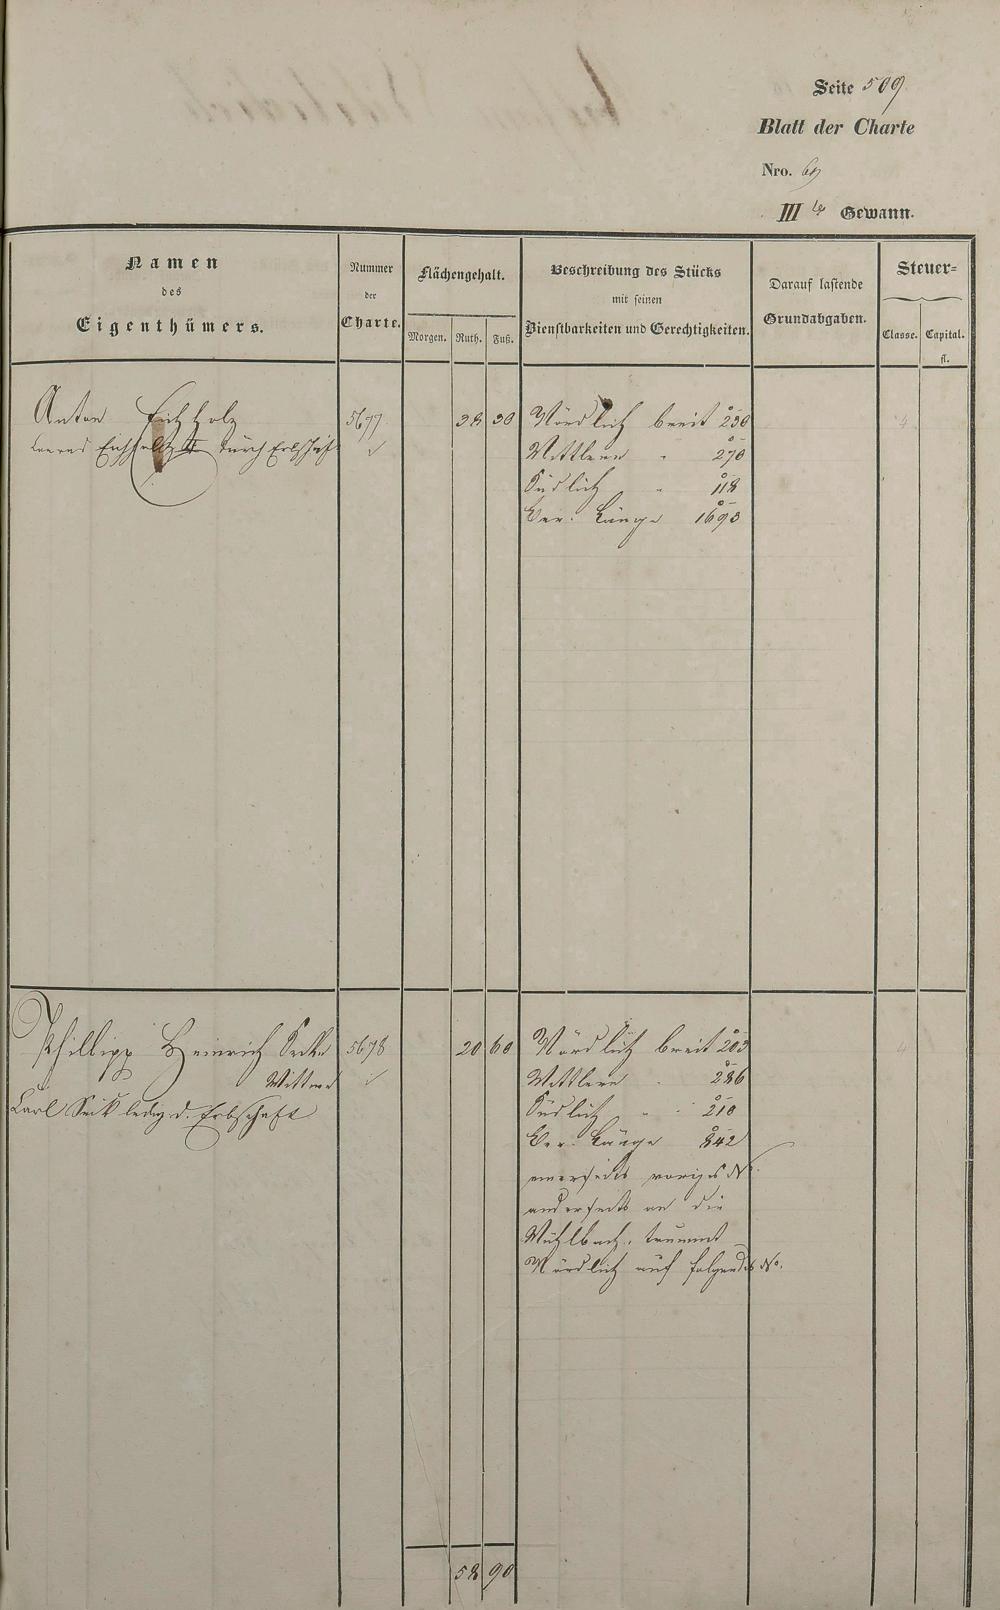 Seite 509
Blatt der Charte
Nro. 69
III te Gewann.
Namen
des
Eigenthümers.
Nummer
der
Charte.
Flächengehalt.
Morgen. Ruth. Fuß.
Beschreibung des Stücks
mit seinen
Dienstbarkeiten und Gerechtigkeiten.
Darauf lastende
Grundabgaben.
Steuer-
Classe. Capital.
fl.
Anton Eichholz 5677 38 30 Nördlich breit 230 4
Eichholz II durch Erbschaft
Mittlere " 270
Südlich " 118
Ver. Länge 1693
Phillipp Heinrich 5678 20 60 Nördlich breit 203 4
Wittwe
Mittlere " 286
Carl Seik ledig d. Erbschaft
Südlich " 210
Ver. Länge 842
einerseits voriges No.
anderseits an die
Mühlbach,
Nördlich auf folgendes No.
58 90